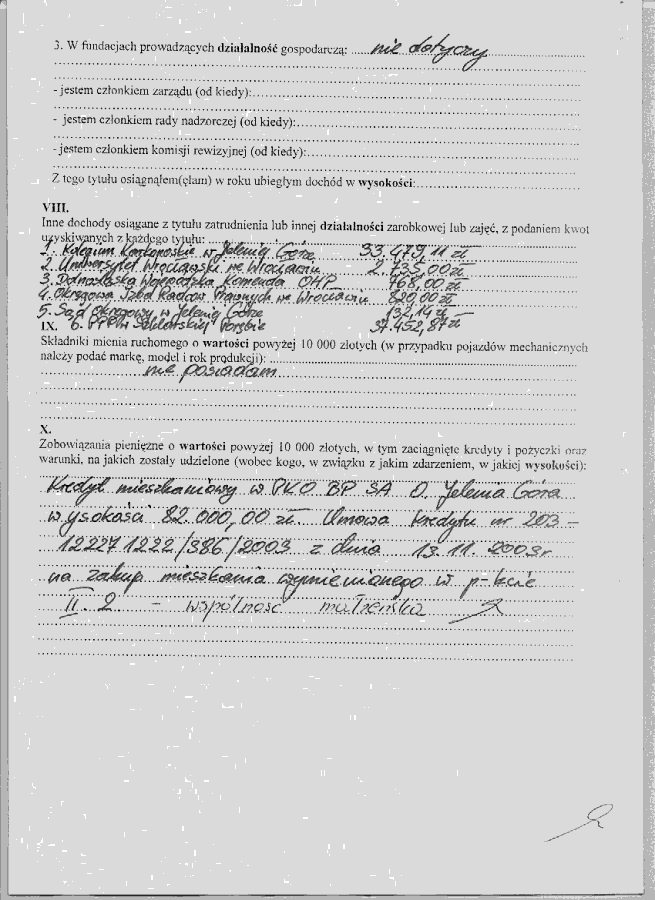 3. W fundacjach prowadzących działalność gospodarczą: nie dotyczy
- jestem członkiem zarządu (od kiedy):
- jestem członkiem rady nadzorczej (od kiedy):
- jestem członkiem komisji rewizyjnej (od kiedy):
Z tego tytułu osiągnąłem(ęłam) w roku ubiegłym dochód w wysokości:
VIII.
Inne dochody osiągane z tytułu zatrudnienia lub innej działalności zarobkowej lub zajęć, z podaniem kwot
uzyskiwanych z każdego tytułu:
1. Kolegium Karkonoskie w Jeleniej Górze 33.479,11 zł
2. Uniwersytet Wrocławski we Wrocławiu 2.735,00 zł
3. Dolnośląska Wojewódzka Komenda OHP 768,00 zł
4. Okręgowa Izba Radców Prawnych we Wrocławiu 820,00 zł
5. Sąd Okręgowy w Jeleniej Górze 132,14 zł
IX. 6. Szklarskiej Porębie 37.452,87 zł
Składniki mienia ruchomego o wartości powyżej 10 000 złotych (w przypadku pojazdów mechanicznych
należy podać markę, model i rok produkcji):
nie posiadam
X.
Zobowiązania pieniężne o wartości powyżej 10 000 złotych, w tym zaciągnięte kredyty i pożyczki oraz
warunki, na jakich zostały udzielone (wobec kogo, w związku z jakim zdarzeniem, w jakiej wysokości):
Kredyt mieszkaniowy w PKO BP SA O. Jelenia Góra
w ysokości 82.000,00 zł. Umowa kredytu nr 203-
12227 1222/386/2003 z dnia 13.11.2003r
na zakup mieszkania wymienionego w p-kcie
II. 2 - wspólność małżeńska